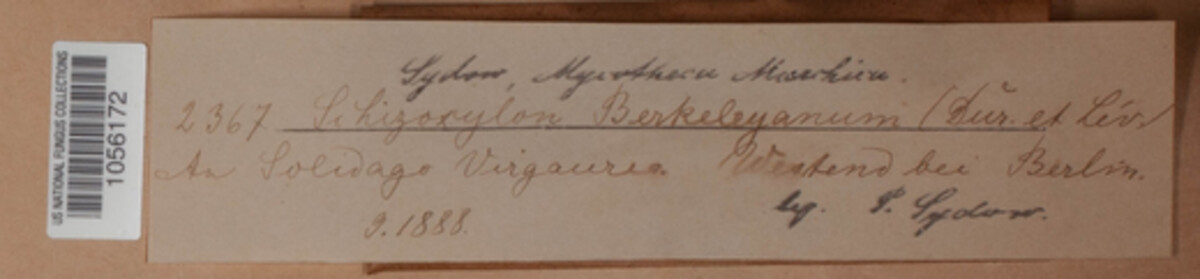 US NATIONAL FUNGUS COLLECTIONS
1056172
Sydow, Mycotheca Marchica.
2367 Schizoxylon Berkeleyanum (Dur. et Lév.)
An Solidago Virgaurea. Westend bei Berlin.
9.1888. leg. P. Sydow.